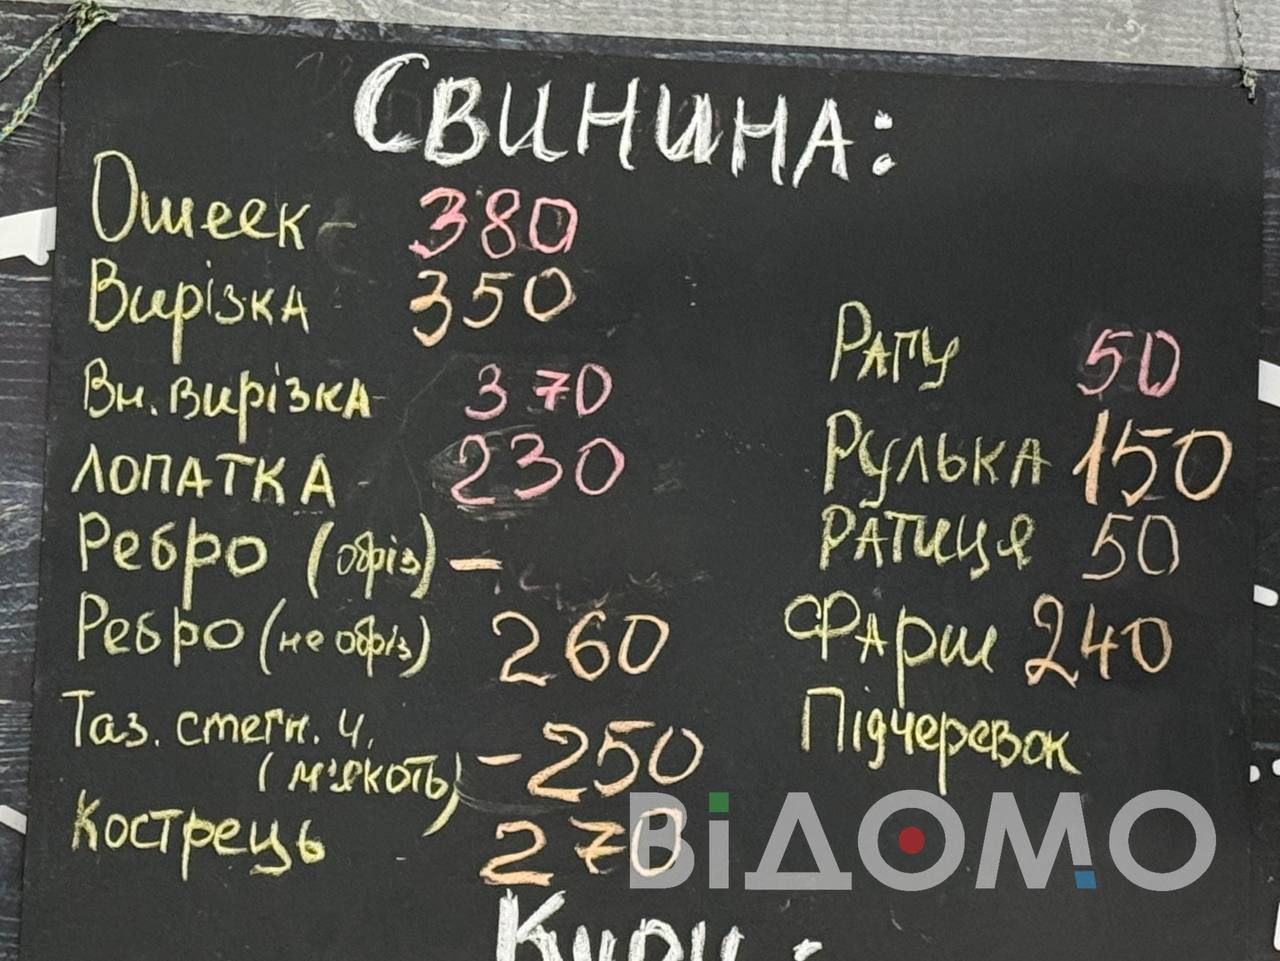 СВИНИНА:
Ошеек - 380
Вирізка 350
Вн. вирізка 370
ЛОПАТКА - 230
Ребро (обріз) -
Ребро (не обріз) 260
Таз. стегн. ч.
(м'якоть) - 250
Кострець 270
Рагу 50
Рулька 150
РАТИЦЯ 50
ФАРш 240
Підчеревок
ВІДОМО
Кури: